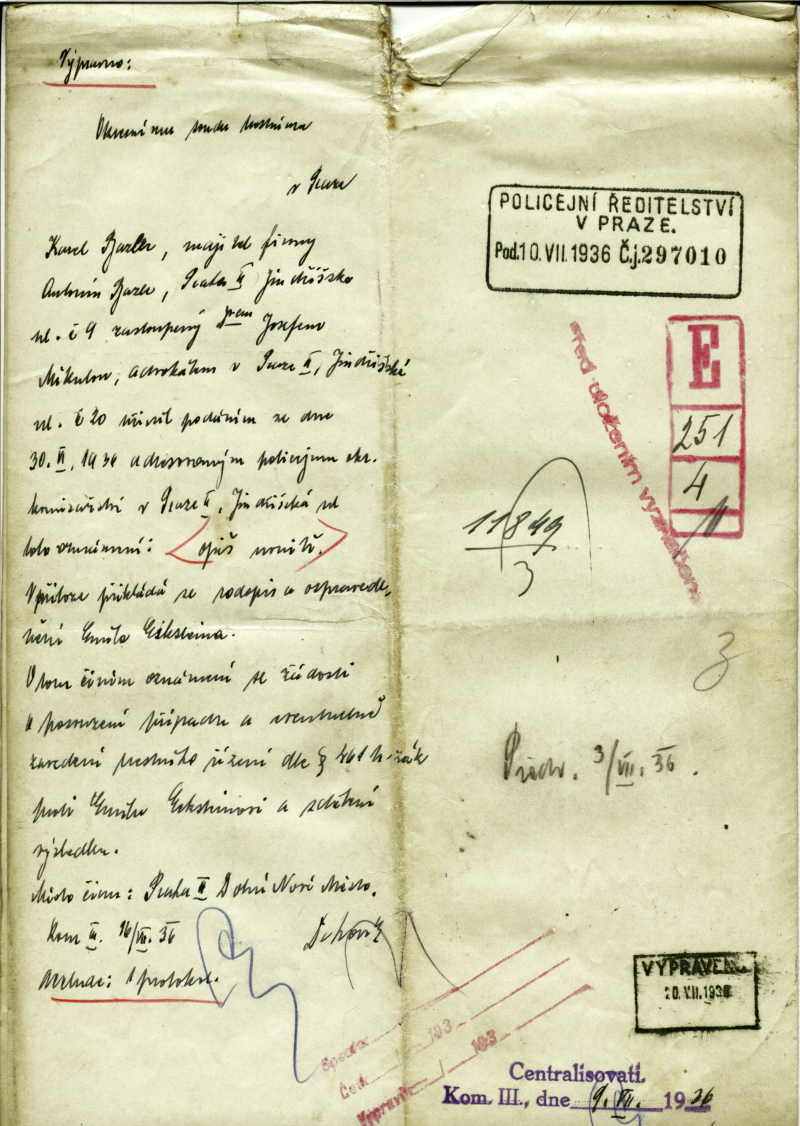 Výpravno:
Okresnímu soudu trestnímu
v Praze
Karel Bazle, majitel firmy
Antonín Bazle, Praha II Jindřišská
ul. č 9 zastoupený Drem Josefem
advokátem v Praze II, Jindřišská
ul. č 20 učinil podáním ze dne
30. VI, 1936 adresovaným policejnímu okr.
komisařství v Praze II, Jindřišská ul
toto oznámení: opis uvnitř.
V příloze přikládá se podpis a ospravedl-
nění Emila Ecksteina.
O tom činím oznámení se žádostí
o posouzení případu a eventuelně
zavedení trestního řízení dle § 461 tr. zák
proti Emilu Ecksteinovi a sdělení
výsledku.
Místo činu: Praha II Dolní Nové Město.
Kom III. 16/VII. 36
1 protokol.
POLICEJNÍ ŘEDITELSTVÍ
V PRAZE.
Pod. 10. VII. 1936 Č.j. 297010
E
251
4
před uložením
11849
3
3
3/VII. 36.
VYPRAVENO
20. VII. 1936
193
Část 193
Vypraviti
Centralisovati.
Kom. III., dne 9. VII. 1936